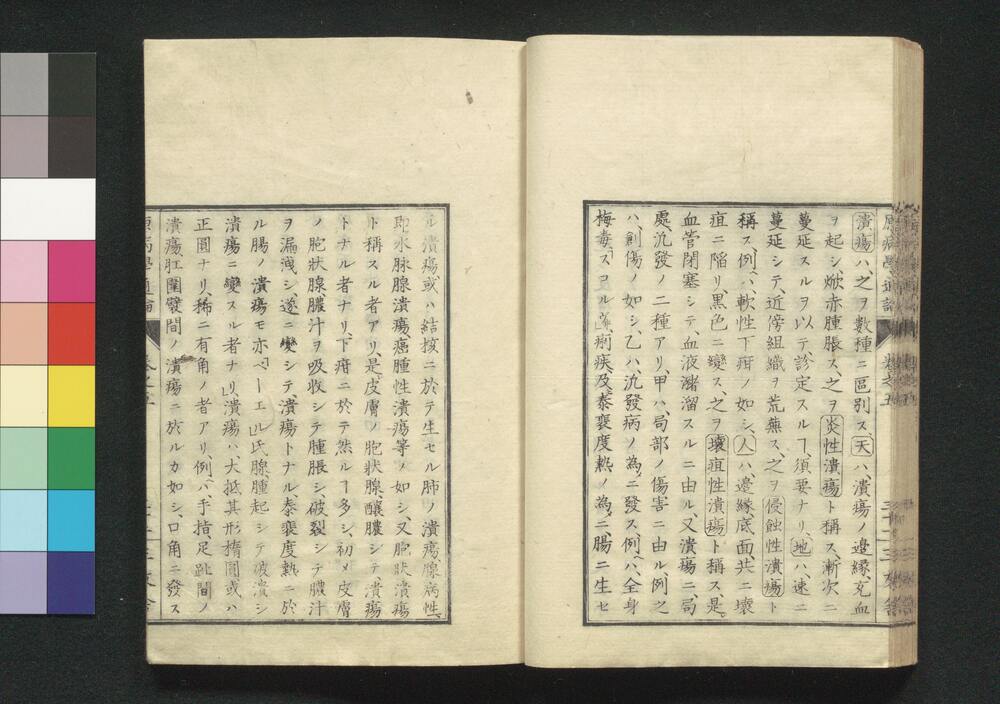 潰瘍ハ、之ヲ數種ニ區別ス、天ハ、潰瘍ノ邊緣、充血
ヲ起シ、焮赤腫脹ス、之ヲ炎性潰瘍ト稱ス、漸次ニ
蔓延スルヲ以テ診定スルヿ、須要ナリ、地ハ、速ニ
蔓延シテ、近傍組織ヲ荒蕪ス、之ヲ侵蝕性潰瘍ト
稱ス、例ヘハ、軟性下疳ノ如シ、人ハ、邊緣、底面、共ニ壞
疽ニ陷リ、黑色ニ變ス、之ヲ壞疽性潰瘍ト稱ス、是
血管閉塞シテ、血液瀦溜スルニ由ル、又潰瘍ニ、局
處、汎發ノ二種アリ、甲ハ、局部ノ傷害ニ由ル、例之
ハ、創傷ノ如シ、乙ハ、汎發病ノ為ニ發ス、例ヘハ、全身
梅毒、「スコルビュ」、痢疾及泰褎度熱ノ為ニ、腸ニ生セ
ル潰瘍、或ハ結核ニ於テ生セル肺ノ潰瘍、腺病性、
即水脉腺潰瘍、癌腫性潰瘍等ノ如シ、又胞狀潰瘍
ト稱スル者アリ、是皮膚ノ胞狀腺、釀膿シテ潰瘍
トナル者ナリ、下疳ニ於テ然ルヿ多シ、初メ皮膚
ノ胞狀腺膿汁ヲ吸收シテ腫脹シ、破裂シテ膿汁
ヲ漏洩シ、遂ニ變シテ潰瘍トナル、泰褎度熱ニ於
ル腸ノ潰瘍モ亦「ペーエル」氏腺、腫起シテ破潰シ
潰瘍ニ變スル者ナリ、潰瘍ハ、大抵其形橢圓或ハ
正圓ナリ、稀ニ有角ノ者アリ、例ヘハ、手指、足趾間ノ
潰瘍、肛圍襞間ノ潰瘍ニ於ルカ如シ、口角ニ發ス